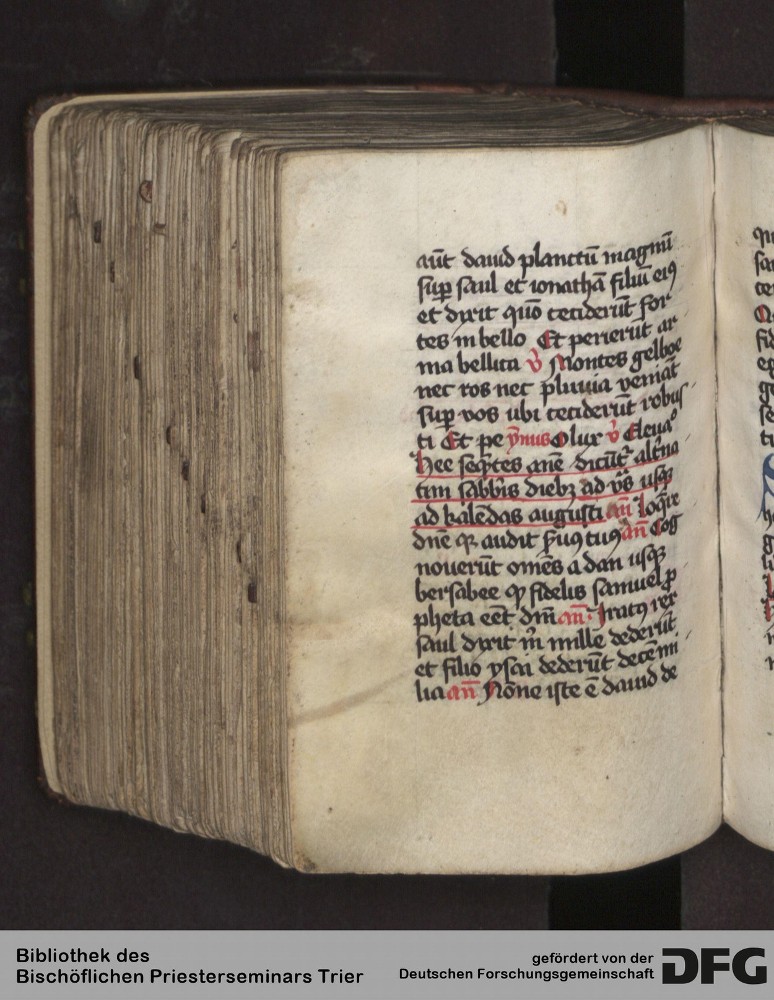 aūt dauid planctū magnū
suꝑ saul et ionathā filiū eiꝰ
et dixit quō ceciderūt for
tes in bello Et perierūt ar
ma bellica v̊ Montes gelboe
nec ros nec pluuia veniāt
suꝑ vos ubi ceciderūt robus
ti Et pe ẏmus O lux v̊ Eleuaᵒ
Hee seq̄ntes ane dicūt᷑ alt̄na
tim sabbis diebꝫ ad vs̄ usqꝫ
ad kalēdas augusti an̄ Loq̄re
dne qꝛ audit s̄uꝰ tuꝰ an̄ Cog
nouerūt omēs a dan usqꝫ
bersabee qꝫ fidelis samuel ꝓ
pheta eēt dm̄ an̄ Iratꝰ rex
saul dixit m̄ mille dederūt
et filio ysai dederūt decē mi
lia an̄ Nōne iste ē dauid de
Bibliothek des
Bischöflichen Priesterseminars Trier
gefördert von der
Deutschen Forschungsgemeinschaft
DFG